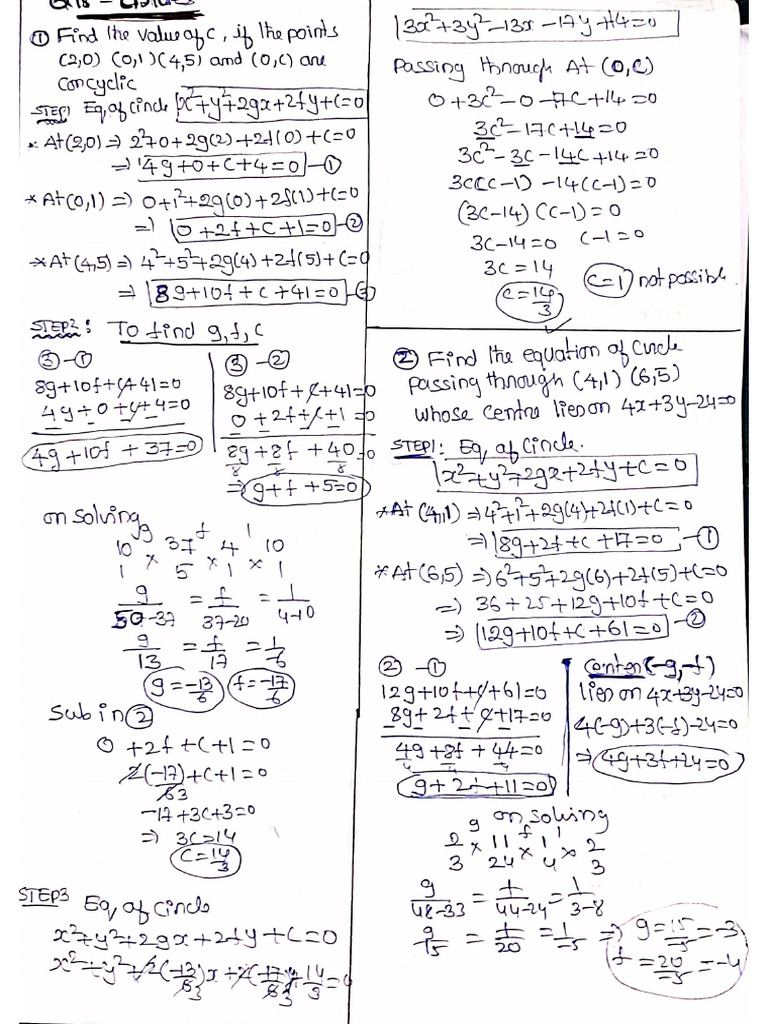 ① Find the value of c, if the points
(2,0) (0,1) (4,5) and (0,c) are
concyclic
STEP1 Eq of circle x²+y²+2gx+2fy+c=0
* At (2,0) ⇒ 2²+0+2g(2)+2f(0)+c=0
⇒ 4g+0+c+4=0 –①
* At (0,1) ⇒ 0+1²+2g(0)+2f(1)+c=0
⇒ 0+2f+c+1=0 –②
* At (4,5) ⇒ 4²+5²+2g(4)+2f(5)+c=0
⇒ 8g+10f+c+41=0 –③
STEP2: To find g,f,c
③-①
8g+10f+c+41=0
4g+0+c+4=0
4g+10f+37=0
③-②
8g+10f+c+41=0
0+2f+c+1=0
8g+8f+40=0
8 8 8
⇒ g+f+5=0
on solving
g f 1
10 37 4 10
1 5 1 1
g/50-37 = f/37-20 = 1/4-10
g/13 = f/17 = 1/-6
g=-13/6 f=-17/6
Sub in ②
0+2f+c+1=0
2(-17)/6 3+c+1=0
-17+3c+3=0
⇒ 3c=14
c=14/3
STEP3 Eq of circle
x²+y²+2gx+2fy+c=0
3x²+3y²-13x-17y+14=0
Passing through At (0,c)
0+3c²-0-17c+14=0
3c²-17c+14=0
3c²-3c-14c+14=0
3c(c-1)-14(c-1)=0
(3c-14)(c-1)=0
3c-14=0 c-1=0
3c=14
c=14/3 c=1 not possible
② Find the equation of circle
passing through (4,1) (6,5)
whose centre lies on 4x+3y-24=0
STEP1: Eq of circle.
x²+y²+2gx+2fy+c=0
* At (4,1) ⇒ 4²+1²+2g(4)+2f(1)+c=0
⇒ 8g+2f+c+17=0 –①
* At (6,5) ⇒ 6²+5²+2g(6)+2f(5)+c=0
⇒ 36+25+12g+10f+c=0
⇒ 12g+10f+c+61=0 –②
② -①
12g+10f+c+61=0
8g+2f+c+17=0
4g+8f+44=0
4 4 4
g+2f+11=0
center(-g,-f)
lies on 4x+3y-24=0
4(-g)+3(-f)-24=0
⇒ 4g+3f+24=0
on solving
g f 1
2 11 1 2
3 24 4 3
g/48-33 = f/44-24 = 1/3-8
g/15 = f/20 = 1/-5 ⇒ g=15/-5=-3
f=20/-5=-4